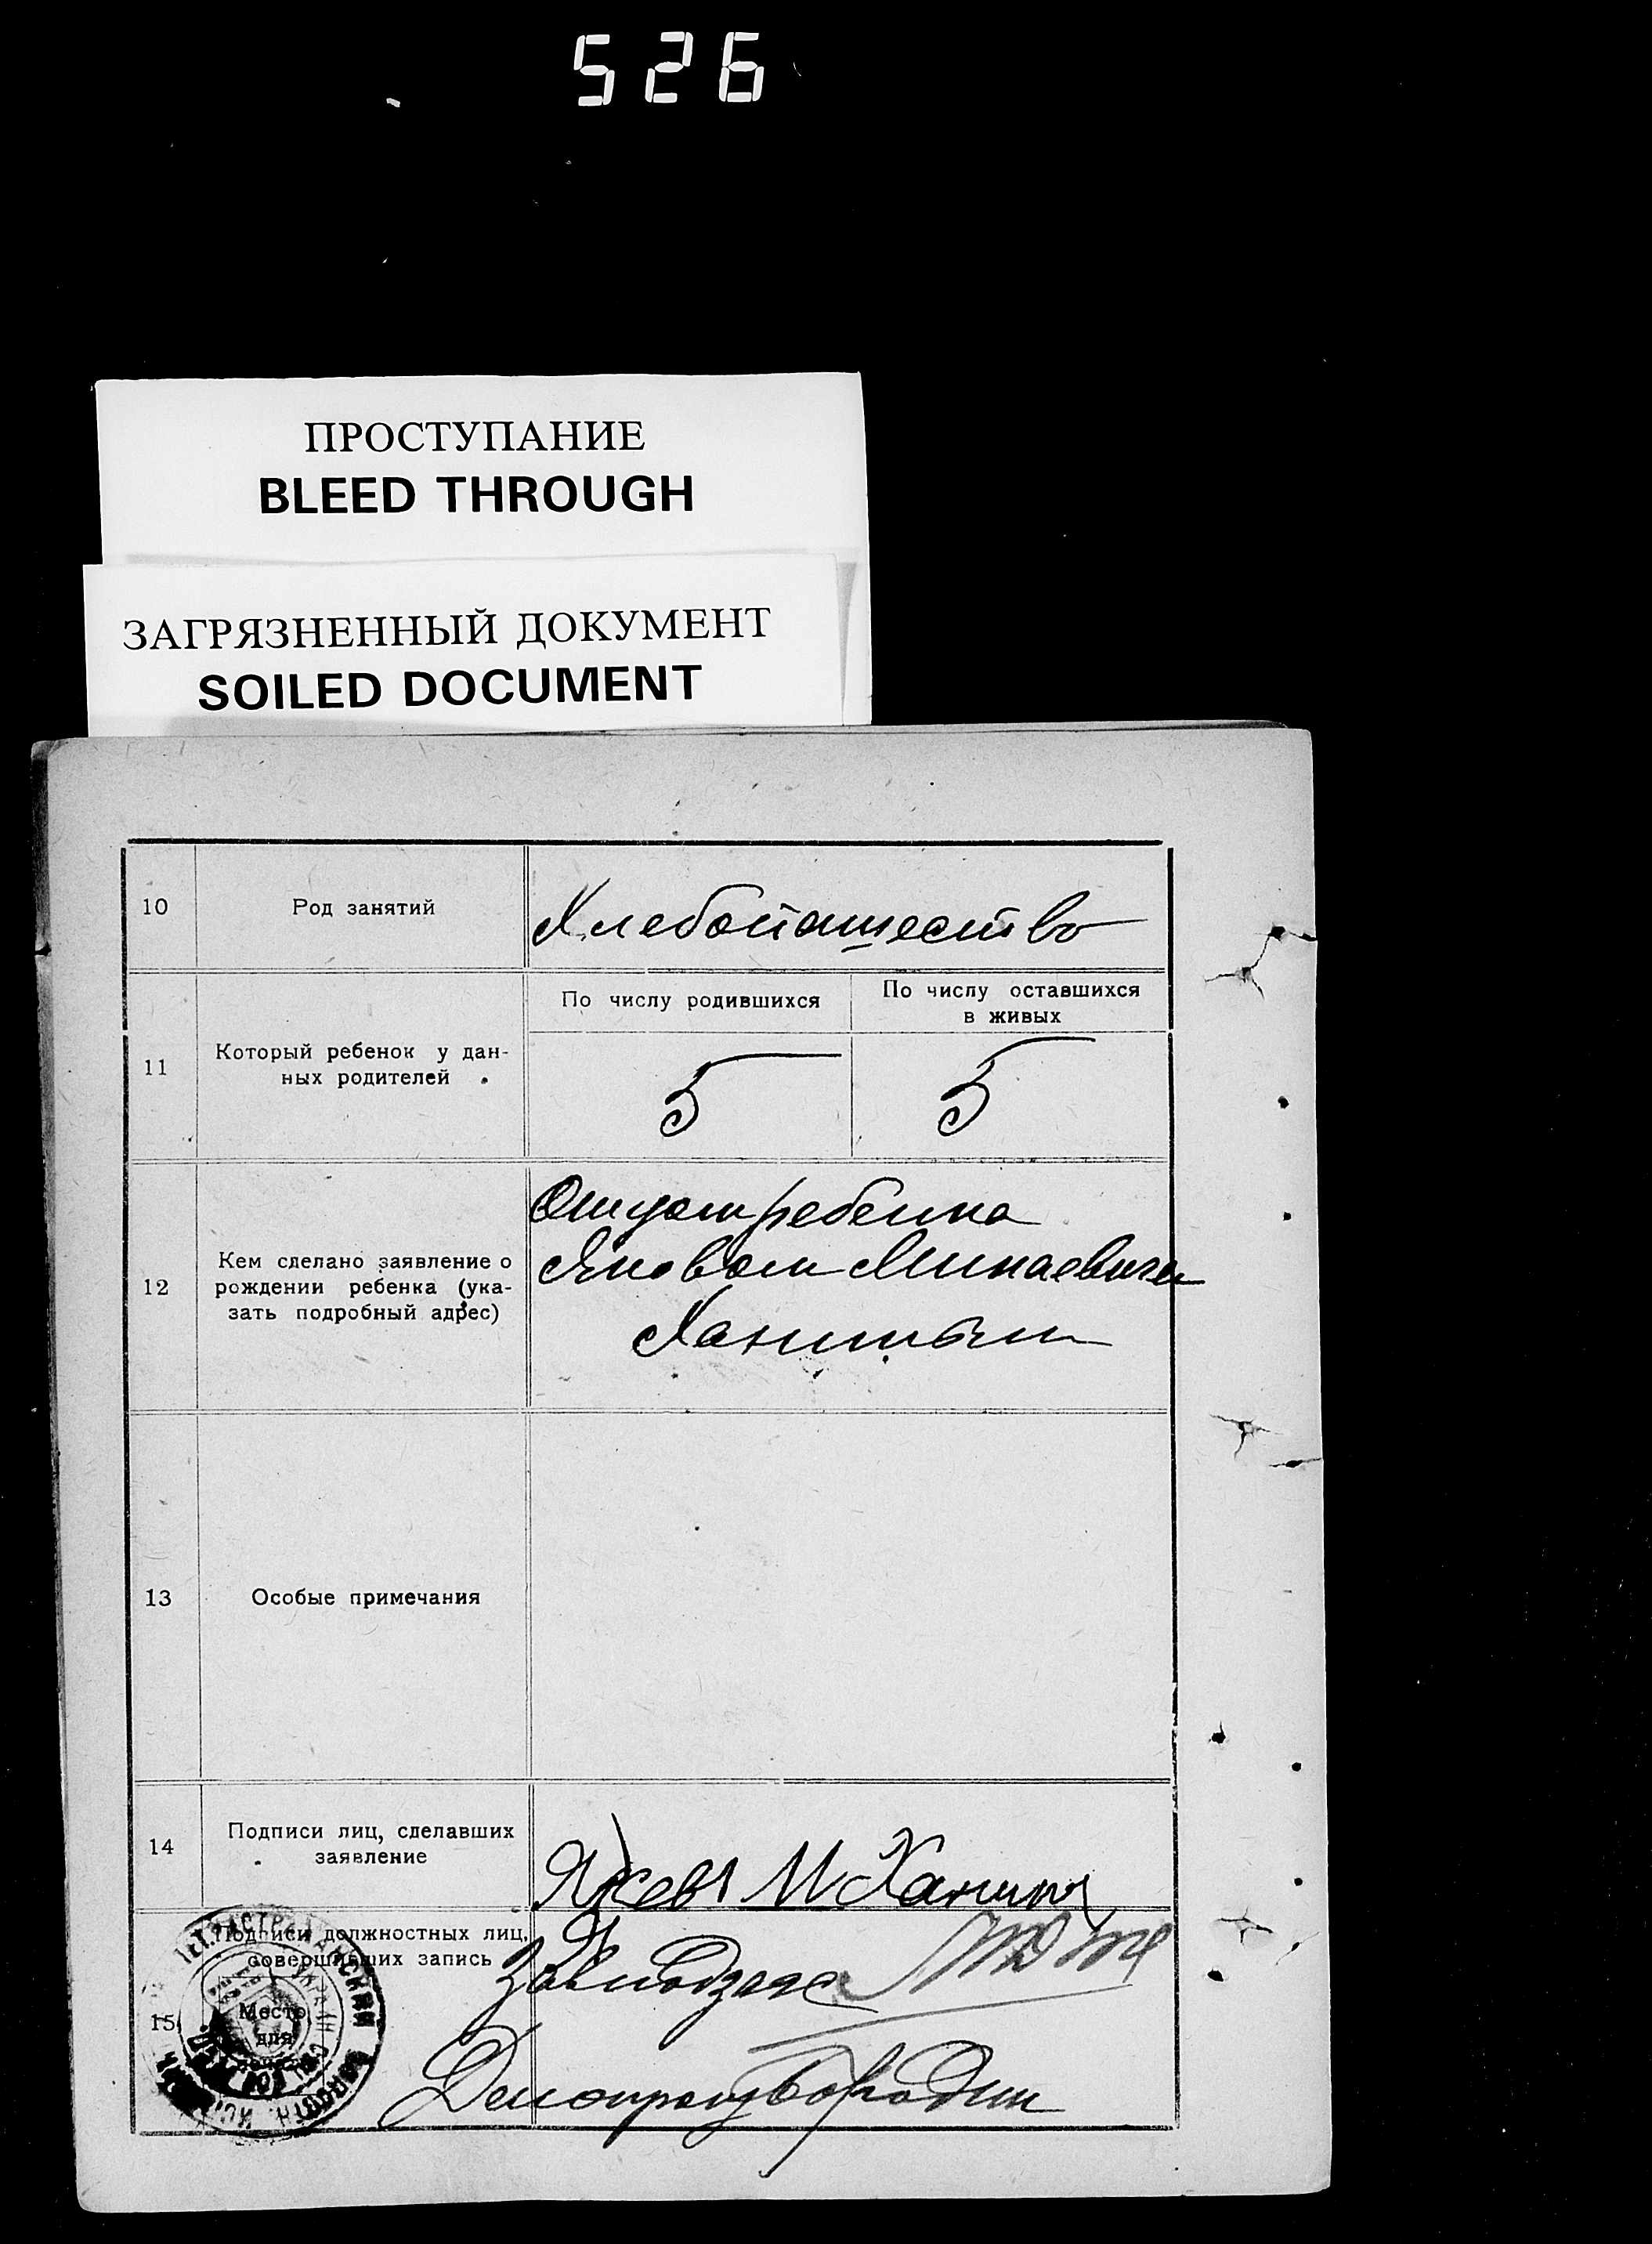 526
ПРОСТУПАНИЕ
BLEED THROUGH
ЗАГРЯЗНЕННЫЙ ДОКУМЕНТ
SOILED DOCUMENT
10 Род занятий Хлебопашество
По числу родившихся По числу оставшихся
в живых
11 Который ребенок у дан-
ных родителей
5 5
12 Кем сделано заявление о
рождении ребенка (ука-
зать подробный адрес)
Отцом ребенка
Яковом Минаевичем
13 Особые примечания
14 Подписи лиц, сделавших
заявление
15 Подписи должностных лиц,
совершивших запись
Место
для
Делопроизв